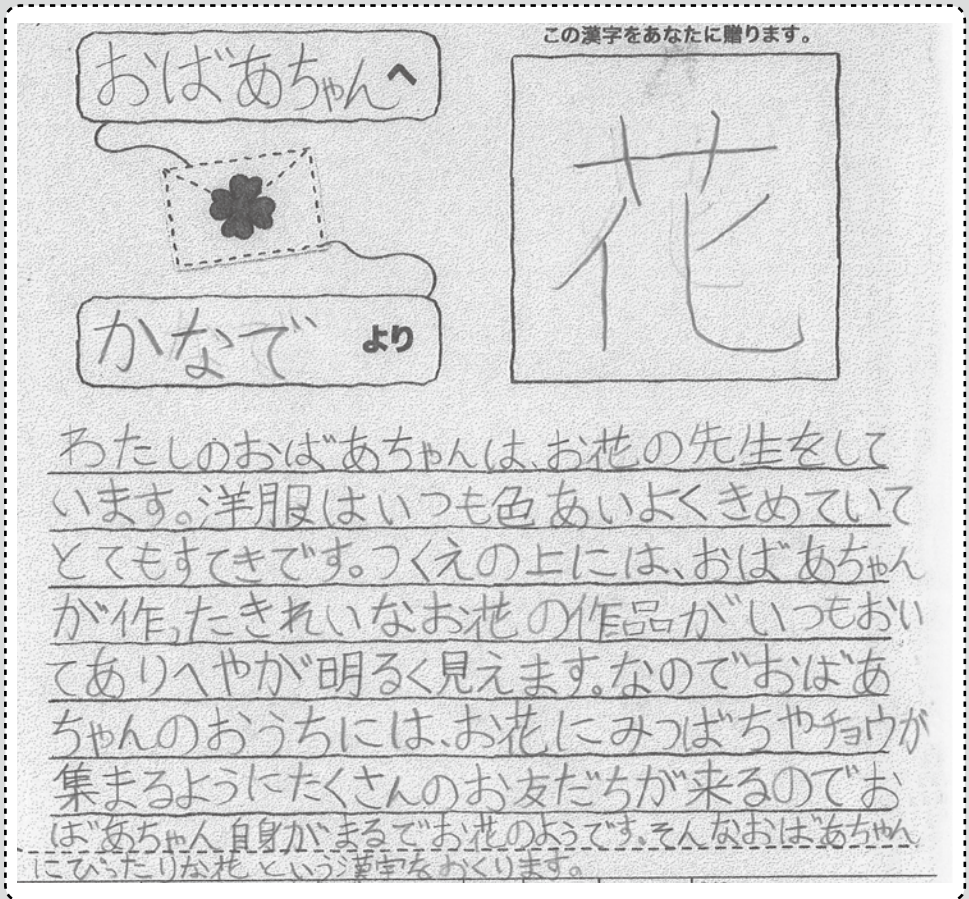 この漢字をあなたに贈ります。
おばあちゃんへ
花
かなでより
わたしのおばあちゃんは、お花の先生をして
います。洋服はいつも色あいよくきめていて
とてもすてきです。つくえの上には、おばあちゃん
が作ったきれいなお花の作品がいつもおい
てありへやが明るく見えます。なのでおばあ
ちゃんのおうちには、お花にみつばちやチョウが
集まるようにたくさんのお友だちが来るのでお
ばあちゃん自身がまるでお花のようです。そんなおばあちゃん
にぴったりな花という漢字をおくります。